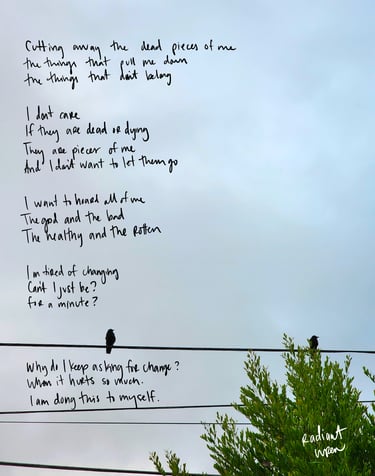 Cutting away the dead pieces of me
the things that pull me down
the things that don't belong
I dont care
If they are dead or dying
They are pieces of me
And I don't want to let them go
I want to hoard all of me
The good and the bad
The healthy and the rotten
I'm tired of changing
Can't I just be?
for a minute?
Why do I keep asking for change?
When it hurts so much.
I am doing this to myself.
Radiant
wren